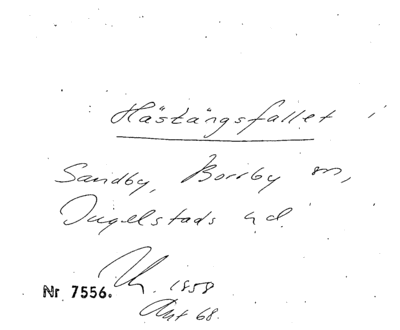 Hästängsfallet i
Sandby, Borrby sn,
Ingelstads hd.
1858
Nr 7556.
Akt 68.